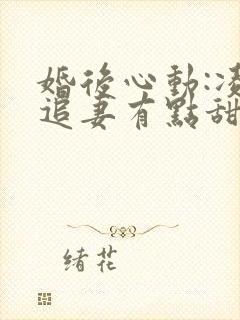 婚後心動:凌
追妻有點甜
绪花